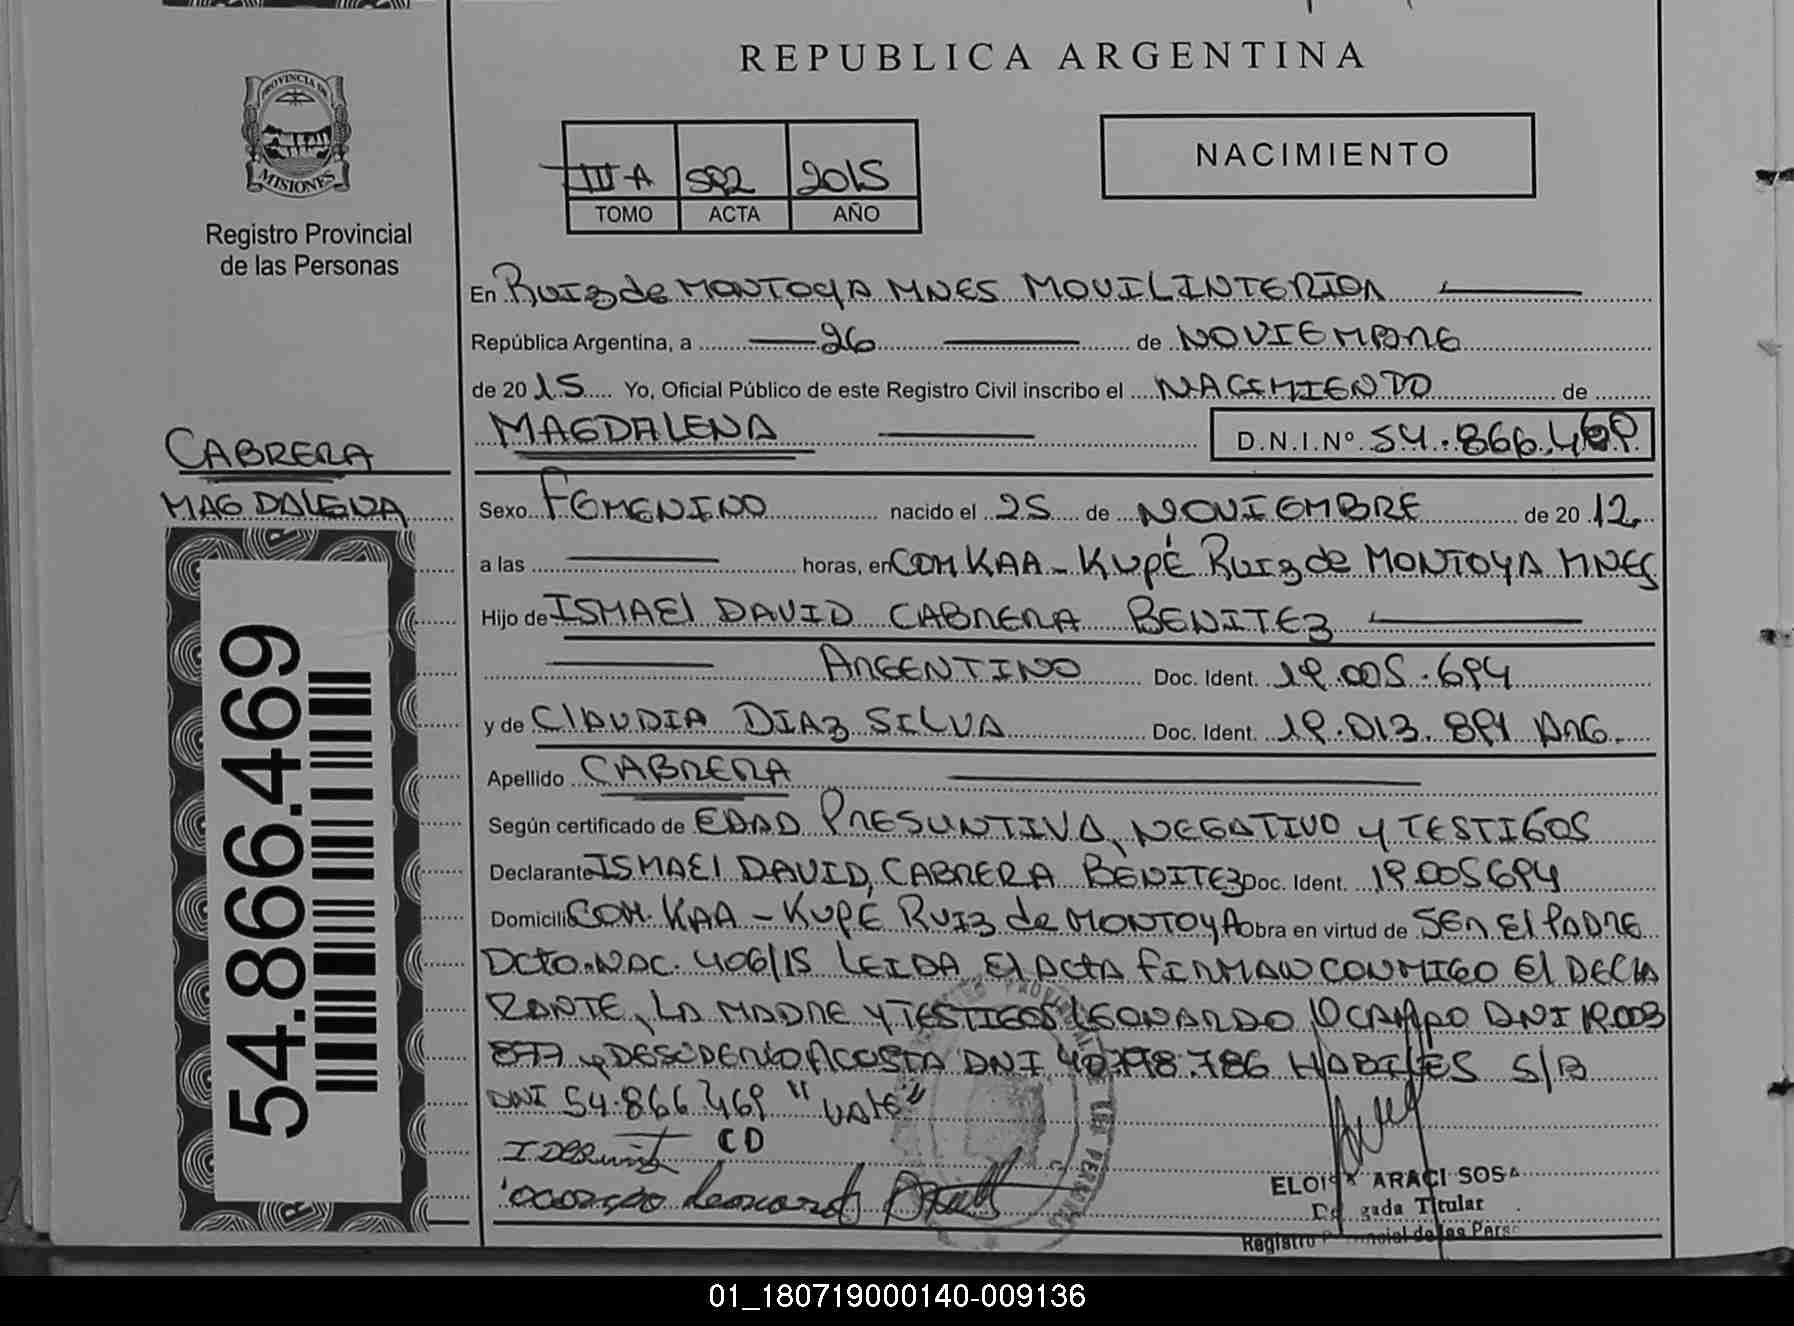 REPUBLICA ARGENTINA
PROVINCIA DE
MISIONES
Registro Provincial
de las Personas
III A 592 2015
TOMO ACTA AÑO
NACIMIENTO
En Ruiz de MONTOYA MNES MOVIL INTERIOR
República Argentina, a 26 de NOVIEMBRE
de 2015 Yo, Oficial Público de este Registro Civil inscribo el NACIMIENTO de
MAGDALENA D.N.I.Nº 54.866.469
CABRERA
MAGDALENA
54.866.469
Sexo FEMENINO nacido el 25 de NOVIEMBRE de 2012
a las horas, en COM. KAA - KUPÉ Ruiz de MONTOYA MNES
Hijo de ISMAEL DAVID CABRERA BENITEZ
ARGENTINO Doc. Ident. 19.005.694
y de CLAUDIA DIAZ SILVA Doc. Ident. 19.013.891 ARG.
Apellido CABRERA
Según certificado de EDAD PRESUNTIVA, NEGATIVO y TESTIGOS
Declarante ISMAEL DAVID, CABRERA BENITEZ Doc. Ident. 19.005694
Domicilio COM. KAA - KUPÉ Ruiz de MONTOYA Obra en virtud de SER El PADRE
DCTO. NAC. 406/15 LEIDA El ACTA FIRMAN CONMIGO El DECLA
RANTE, LA MADRE y TESTIGOS LEONARDO OCAMPO DNI 19.003
877 y DESIDERIO ACOSTA DNI 40.798.786 HABILES S/B
DNI 54.866.469 "VALE"
CD
Ocampo Leonardo
ELOISA ARACI SOSA
Delegada Titular
Registro Provincial de las Pers
01_180719000140-009136